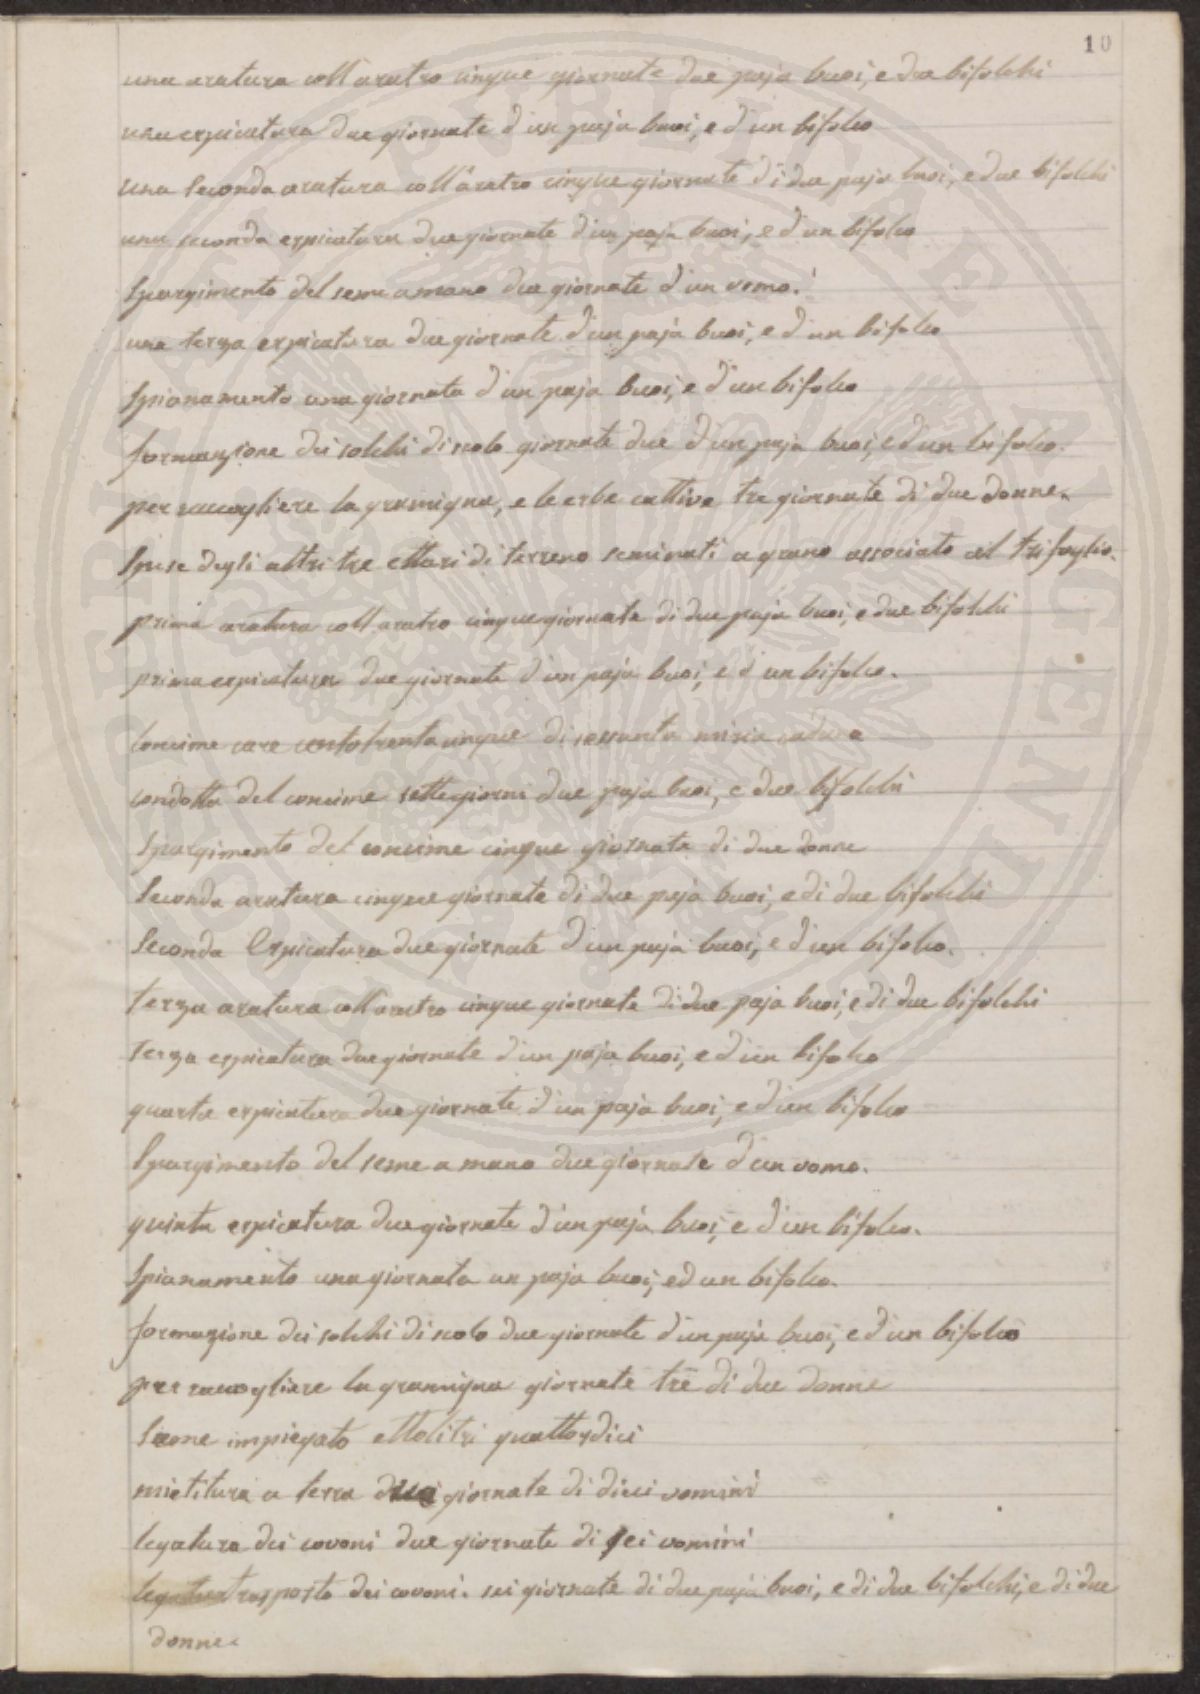 10
una aratura coll'aratro cinque giornate due paja buoi, e due bifolchi
una erpicatura due giornate d'un paja buoi, e d'un bifolco
una seconda aratura coll'aratro cinque giornate di due paja buoi, e due bifolchi
una seconda erpicatura due giornate d'un paja buoi, e d'un bifolco
Spargimento del seme a mano due giornate d'un uomo.
una terza erpicatura due giornate d'un paja buoi, e d'un bifolco
Spianamento una giornata d'un paja buoi, e d'un bifolco
formazione dei solchi di scolo giornate due d'un paja buoi, e d'un bifolco.
per raccogliere la gramigna, e le erbe cattive tre giornate di due donne.
Spese degli altri tre ettari di terreno seminati a grano associato al trifoglio.
prima aratura coll'aratro cinque giornate di due paja buoi, e due bifolchi
prima erpicatura due giornate d'un paja buoi, e d'un bifolco.
Concime care centotrenta cinque di sessanta miria
condotta del concime sette giorni due paja buoi, e due bifolchi
Spargimento del concime cinque giornate di due donne
Seconda aratura cinque giornate di due paja buoi, e di due bifolchi
Seconda Erpicatura due giornate d'un paja buoi, e d'un bifolco.
terza aratura coll'aratro cinque giornate di due paja buoi, e di due bifolchi
terza erpicatura due giornate d'un paja buoi, e d'un bifolco
quarta erpicatura due giornate d'un paja buoi, e d'un bifolco
Spargimento del seme a mano due giornate d'un uomo.
quinta erpicatura due giornate d'un paja buoi, e d'un bifolco.
Spianamento una giornata un paja buoi, ed un bifolco.
formazione dei solchi di scolo due giornate d'un paja buoi, e d'un bifolco
per raccogliere la gramigna giornate tre di due donne
Seme impiegato ettolitri quattordici
mietitura a terra due giornate di dieci uomini
legatura dei covoni due giornate di sei uomini
trasporto dei covoni. sei giornate di due paja buoi, e di due bifolchi, e di due
donne